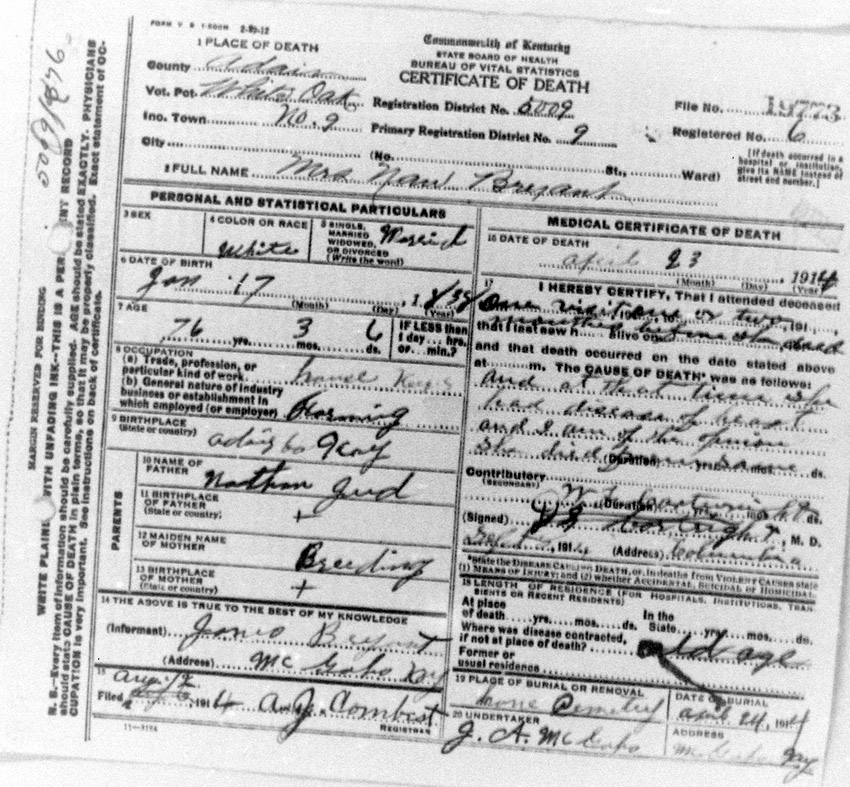 FORM V S 1-500M 2-20-12
Commonwealth of Kentucky
STATE BOARD OF HEALTH
BUREAU OF VITAL STATISTICS
CERTIFICATE OF DEATH
1 PLACE OF DEATH
County Adair
Vot. Pct. White Oak
Inc. Town No. 9
City
Registration District No. 5009
Primary Registration District No. 9
File No. 19773
Registered No. 6
(No. St., Ward)
[If death occurred in a hospital or institution, give its NAME instead of street and number.]
2 FULL NAME Mrs Nan Bryant
PERSONAL AND STATISTICAL PARTICULARS
3 SEX
4 COLOR OR RACE
White
5 SINGLE, MARRIED WIDOWED, OR DIVORCED (Write the word)
Married
6 DATE OF BIRTH
Jan 17, 1838
(Month) (Day) (Year)
7 AGE
76 yrs. 3 mos. 6 ds.
IF LESS than 1 day hrs. or min.?
8 OCCUPATION
(a) Trade, profession, or particular kind of work house
(b) General nature of industry business or establishment in which employed (or employer) Farming
9 BIRTHPLACE
(State or country)
Adair co Kay
PARENTS
10 NAME OF FATHER
Nathan Jud
11 BIRTHPLACE OF FATHER
(State or country)
+
12 MAIDEN NAME OF MOTHER
Breeding
13 BIRTHPLACE OF MOTHER
(State or country)
+
14 THE ABOVE IS TRUE TO THE BEST OF MY KNOWLEDGE
(Informant) James Bryant
(Address) McGaho Ky
15
Filed Aug 12, 1914 A. J. Combest
REGISTRAR
11-3184
MEDICAL CERTIFICATE OF DEATH
16 DATE OF DEATH
April 23, 1914
(Month) (Day) (Year)
17 I HEREBY CERTIFY, That I attended deceased
one visit or two
months before she died
that I last saw h alive on
and that death occurred on the date stated above
at m. The CAUSE OF DEATH* was as follows:
and at that time she
had disease of heart
and I am of the opinion
she died from same
(Duration) yrs. mos. ds.
Contributory
(SECONDARY)
(Duration) yrs. mos. ds.
(Signed) Cartwright, M. D.
1914 (Address) Columbia
*State the DISEASE CAUSING DEATH, or, in deaths from VIOLENT CAUSES state (1) MEANS OF INJURY; and (2) whether ACCIDENTAL, SUICIDAL or HOMICIDAL.
18 LENGTH OF RESIDENCE (FOR HOSPITALS, INSTITUTIONS, TRANSIENTS OR RECENT RESIDENTS)
At place of death yrs. mos. ds.
In the State yrs. mos. ds.
Where was disease contracted, if not at place of death?
old age
Former or usual residence
19 PLACE OF BURIAL OR REMOVAL
Cemetery
DATE OF BURIAL
April 24, 1914
20 UNDERTAKER
J. A. McGaho
ADDRESS
McGaho Ky
MARGIN RESERVED FOR BINDING
WRITE PLAINLY WITH UNFADING INK--THIS IS A PER NT RECORD
N. B.--Every item of information should be carefully supplied. AGE should be stated EXACTLY. PHYSICIANS
should state CAUSE OF DEATH in plain terms, so that it may be properly classified. Exact statement of OC-
CUPATION is very important. See instructions on back of certificate.